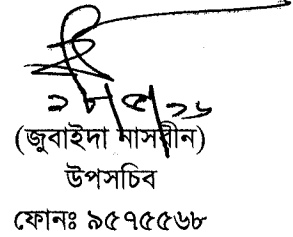 ১৮/৫/১৬
(জুবাইদা নাসরীন)
উপসচিব
ফোনঃ ৯৫৭৫৫৬৮